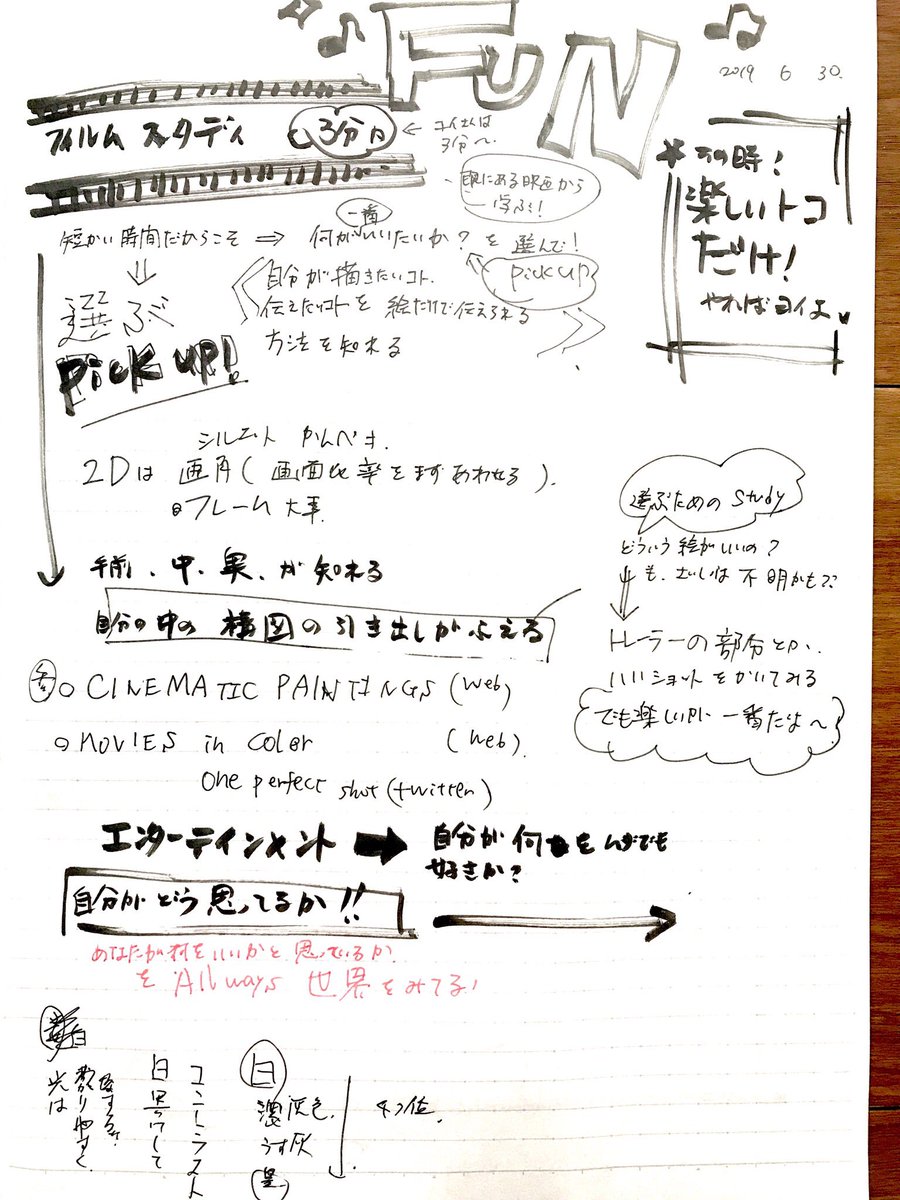 FUN
2019 6 30.
フィルム スタディ 3分
← コイさんは
3分〜
既にある映画から
学ぶ!!
* その時!
楽しいトコ
だけ!
やればヨイよ
短かい時間だからこそ ⇒ 一番 何がいいたいか? を 選んで!
pick up
選ぶ
Pick UP!
自分が描きたいコト.
伝えたいコトを 絵だけで伝えられる
方法を知れる
シルエット かんぺき.
2Dは 画角(画面比率をまずあわせる).
フレーム大事.
手前、中、奥、が知れる
自分の中の構図の引き出しがふえる
選ぶための Study
どういう絵がいいの?
トレーラーの部分とか、
いいショットをかいてみる
でも楽しい 一番だよ〜
CINEMATIC PAINTINGS (web)
MOVIES in Color (web)
One perfect shot (twitter)
エンターテインメント ➡ 自分が何を
好きか?
自分がどう思ってるか!!
あなたが何をいいかと思っているか
を Allways 世界をみてる!
白
濃灰色、
うす灰
4つ位.
コントラスト